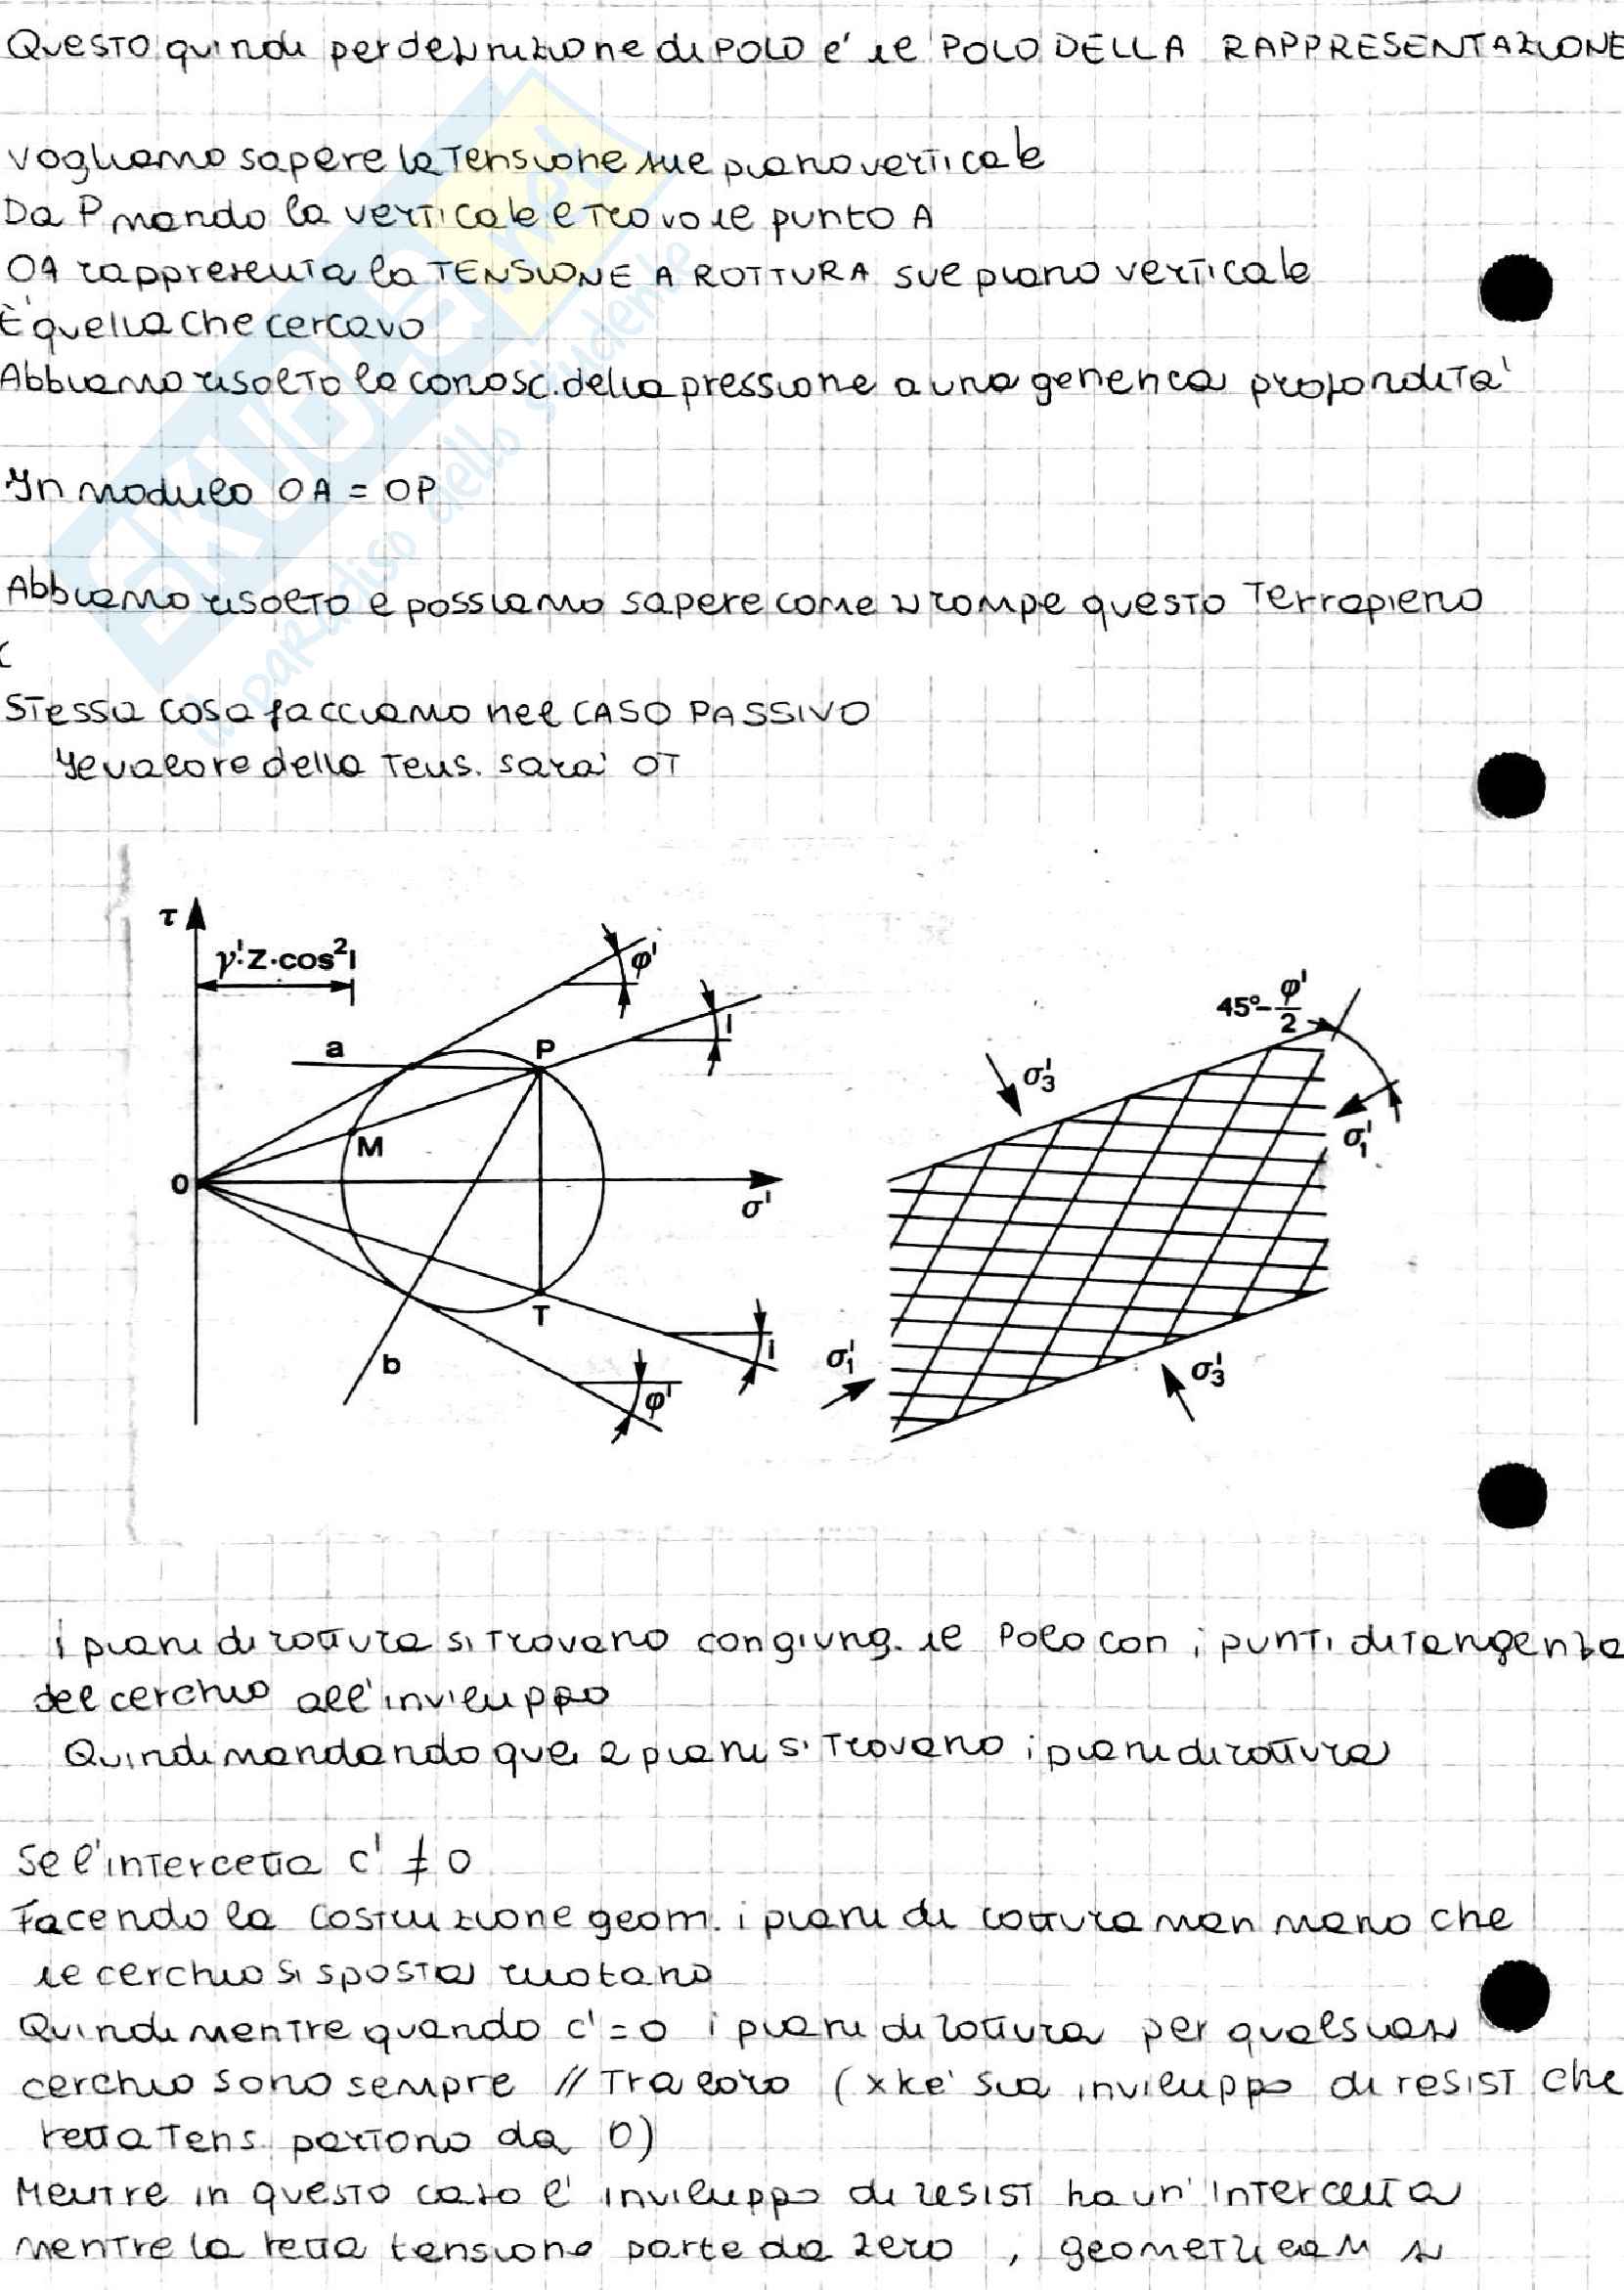 Questo quindi per definizione di POLO e' il POLO DELLA RAPPRESENTAZIONE
Vogliamo sapere la tensione sul piano verticale
Da P mando la verticale e trovo il punto A
OA rappresenta la TENSIONE A ROTTURA sul piano verticale
È quella che cercavo
Abbiamo risolto la conosc. della pressione a una generica profondita'
In modulo OA = OP
Abbiamo risolto e possiamo sapere come si rompe questo terrapieno
Stessa cosa facciamo nel CASO PASSIVO
Il valore della tens. sara' OT
τ
γ'·Z·cos²i
φ'
i
a
P
M
O
σ'
T
b
i
φ'
45°-φ'/2
σ'3
σ'1
σ'1
σ'3
i piani di rottura si trovano congiung. il Polo con i punti di tangenza
del cerchio all'inviluppo
Quindi mandando quei 2 piani si trovano i piani di rottura
Se l'intercetta c' ≠ 0
Facendo la costruzione geom. i piani di rottura man mano che
il cerchio si sposta ruotano
Quindi mentre quando c'=0 i piani di rottura per qualsiasi
cerchio sono sempre // tra loro (xke' sia inviluppo di resist che
retta tens. partono da 0)
Mentre in questo caso l' inviluppo di resist ha un' intercetta
mentre la retta tensione parte da zero , geometricam si
SKUOLA.net
il paradiso dello studente